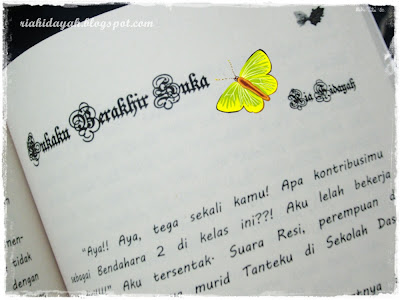 riahidayah.blogspot.com
Lukaku Berakhir Suka
Ria Hidayah
"Aya!! Aya, tega sekali kamu! Apa kontribusimu
sebagai Bendahara 2 di kelas ini??! Aku lelah bekerja
Aku tersentak. Suara Resi, perempuan
murid Tanteku di Sekolah Das
men-
tidak
dengan